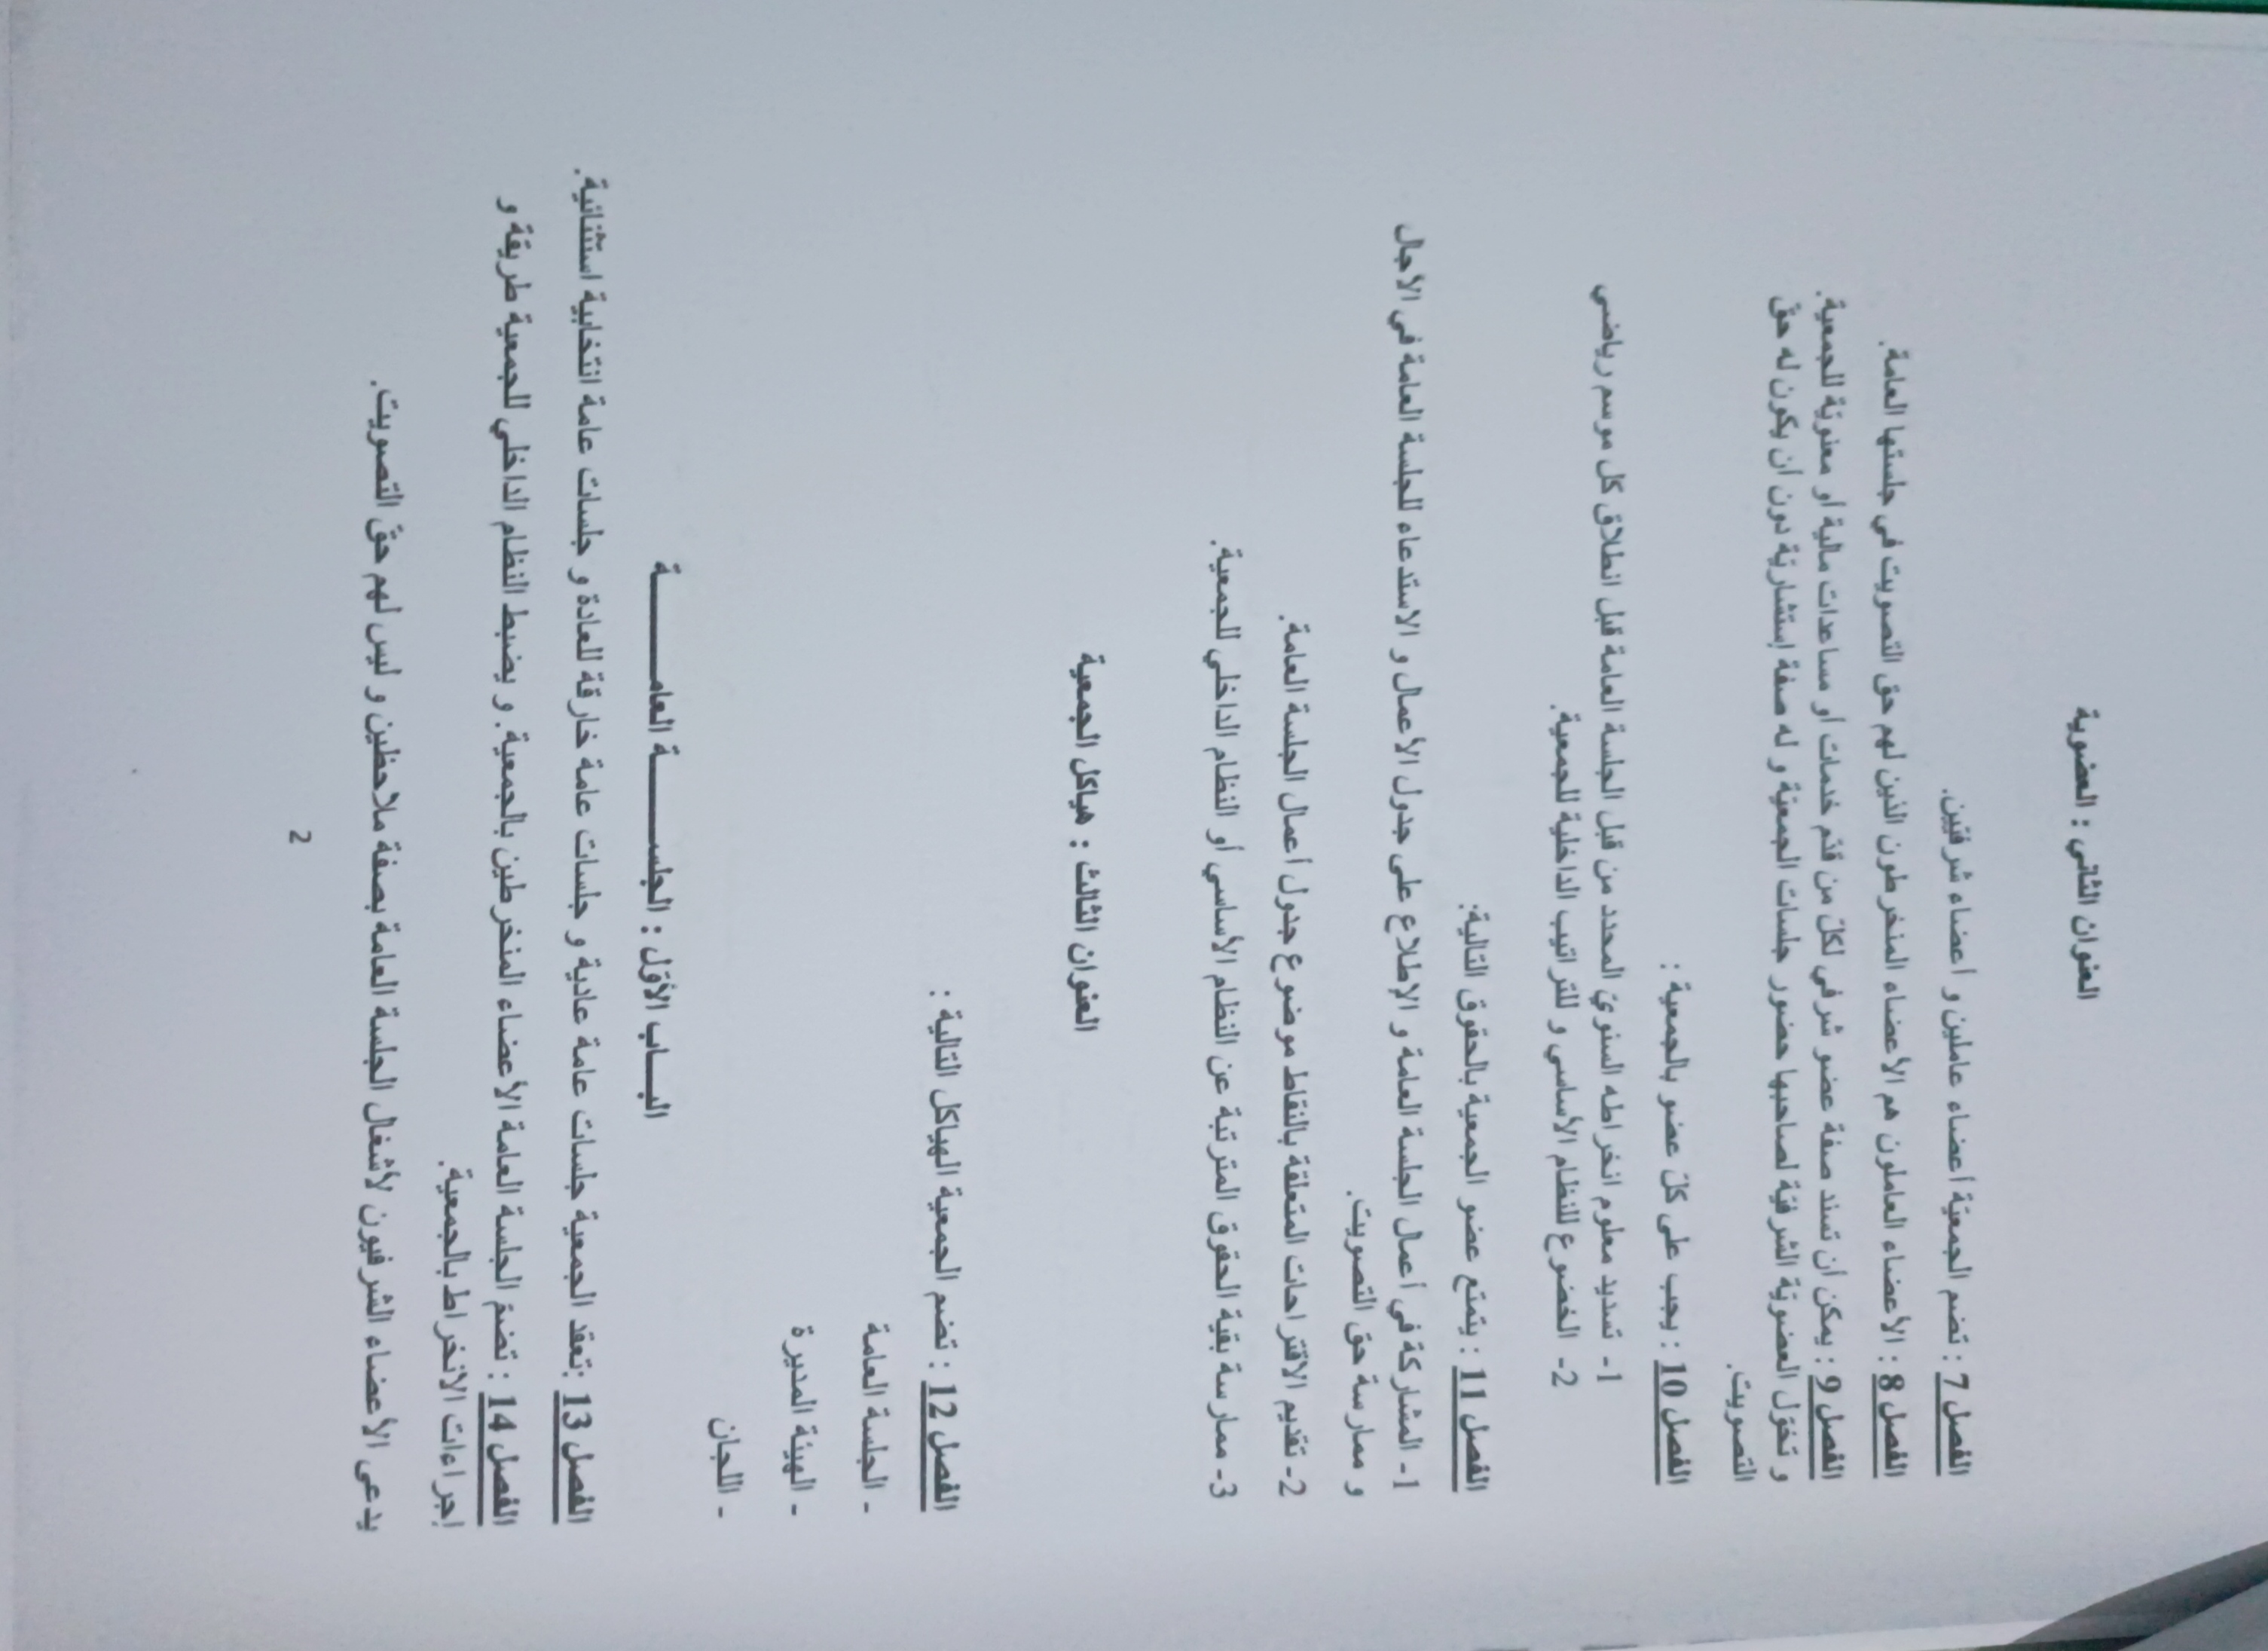 العنوان الثاني : العضوية
الفصل 7 : تضم الجمعيّة أعضاء عاملين و أعضاء شرفيّين.
الفصل 8 : الأعضاء العاملون هم الأعضاء المنخرطون الذين لهم حق التصويت في جلستها العامة.
الفصل 9 : يمكن أن تسند صفة عضو شرفي لكلّ من قدّم خدمات أو مساعدات مالية أو معنويّة للجمعية.
و تخوّل العضويّة الشرفيّة لصاحبها حضور جلسات الجمعيّة و له صفة إستشاريّة دون أن يكون له حقّ
التصويت.
الفصل 10 : يجب على كلّ عضو بالجمعية :
1- تسديد معلوم انخراطه السنويّ المحدد من قبل الجلسة العامة قبل انطلاق كل موسم رياضي
2- الخضوع للنظام الأساسي و للتراتيب الداخلية للجمعية.
الفصل 11 : يتمتع عضو الجمعية بالحقوق التالية:
1- المشاركة في أعمال الجلسة العامة و الإطلاع على جدول الأعمال و الاستدعاء للجلسة العامة في الآجال
و ممارسة حق التصويت.
2- تقديم الاقتراحات المتعلقة بالنقاط موضوع جدول أعمال الجلسة العامة.
3- ممارسة بقية الحقوق المترتبة عن النظام الأساسي أو النظام الداخلي للجمعية.
العنوان الثالث : هياكل الجمعية
الفصل 12 : تضم الجمعية الهياكل التالية :
- الجلسة العامة
- الهيئة المديرة
- اللجان
البـــاب الأوّل : الجلســـــــة العامـــــــــة
الفصل 13 :تعقد الجمعية جلسات عامة عادية و جلسات عامة خارقة للعادة و جلسات عامة انتخابية استثنائية.
الفصل 14 : تضمّ الجلسة العامة الأعضاء المنخرطين بالجمعية. و يضبط النظام الداخلي للجمعية طريقة و
إجراءات الانخراط بالجمعية.
يدعى الأعضاء الشرفيون لأشغال الجلسة العامة بصفة ملاحظين و ليس لهم حقّ التصويت.
2